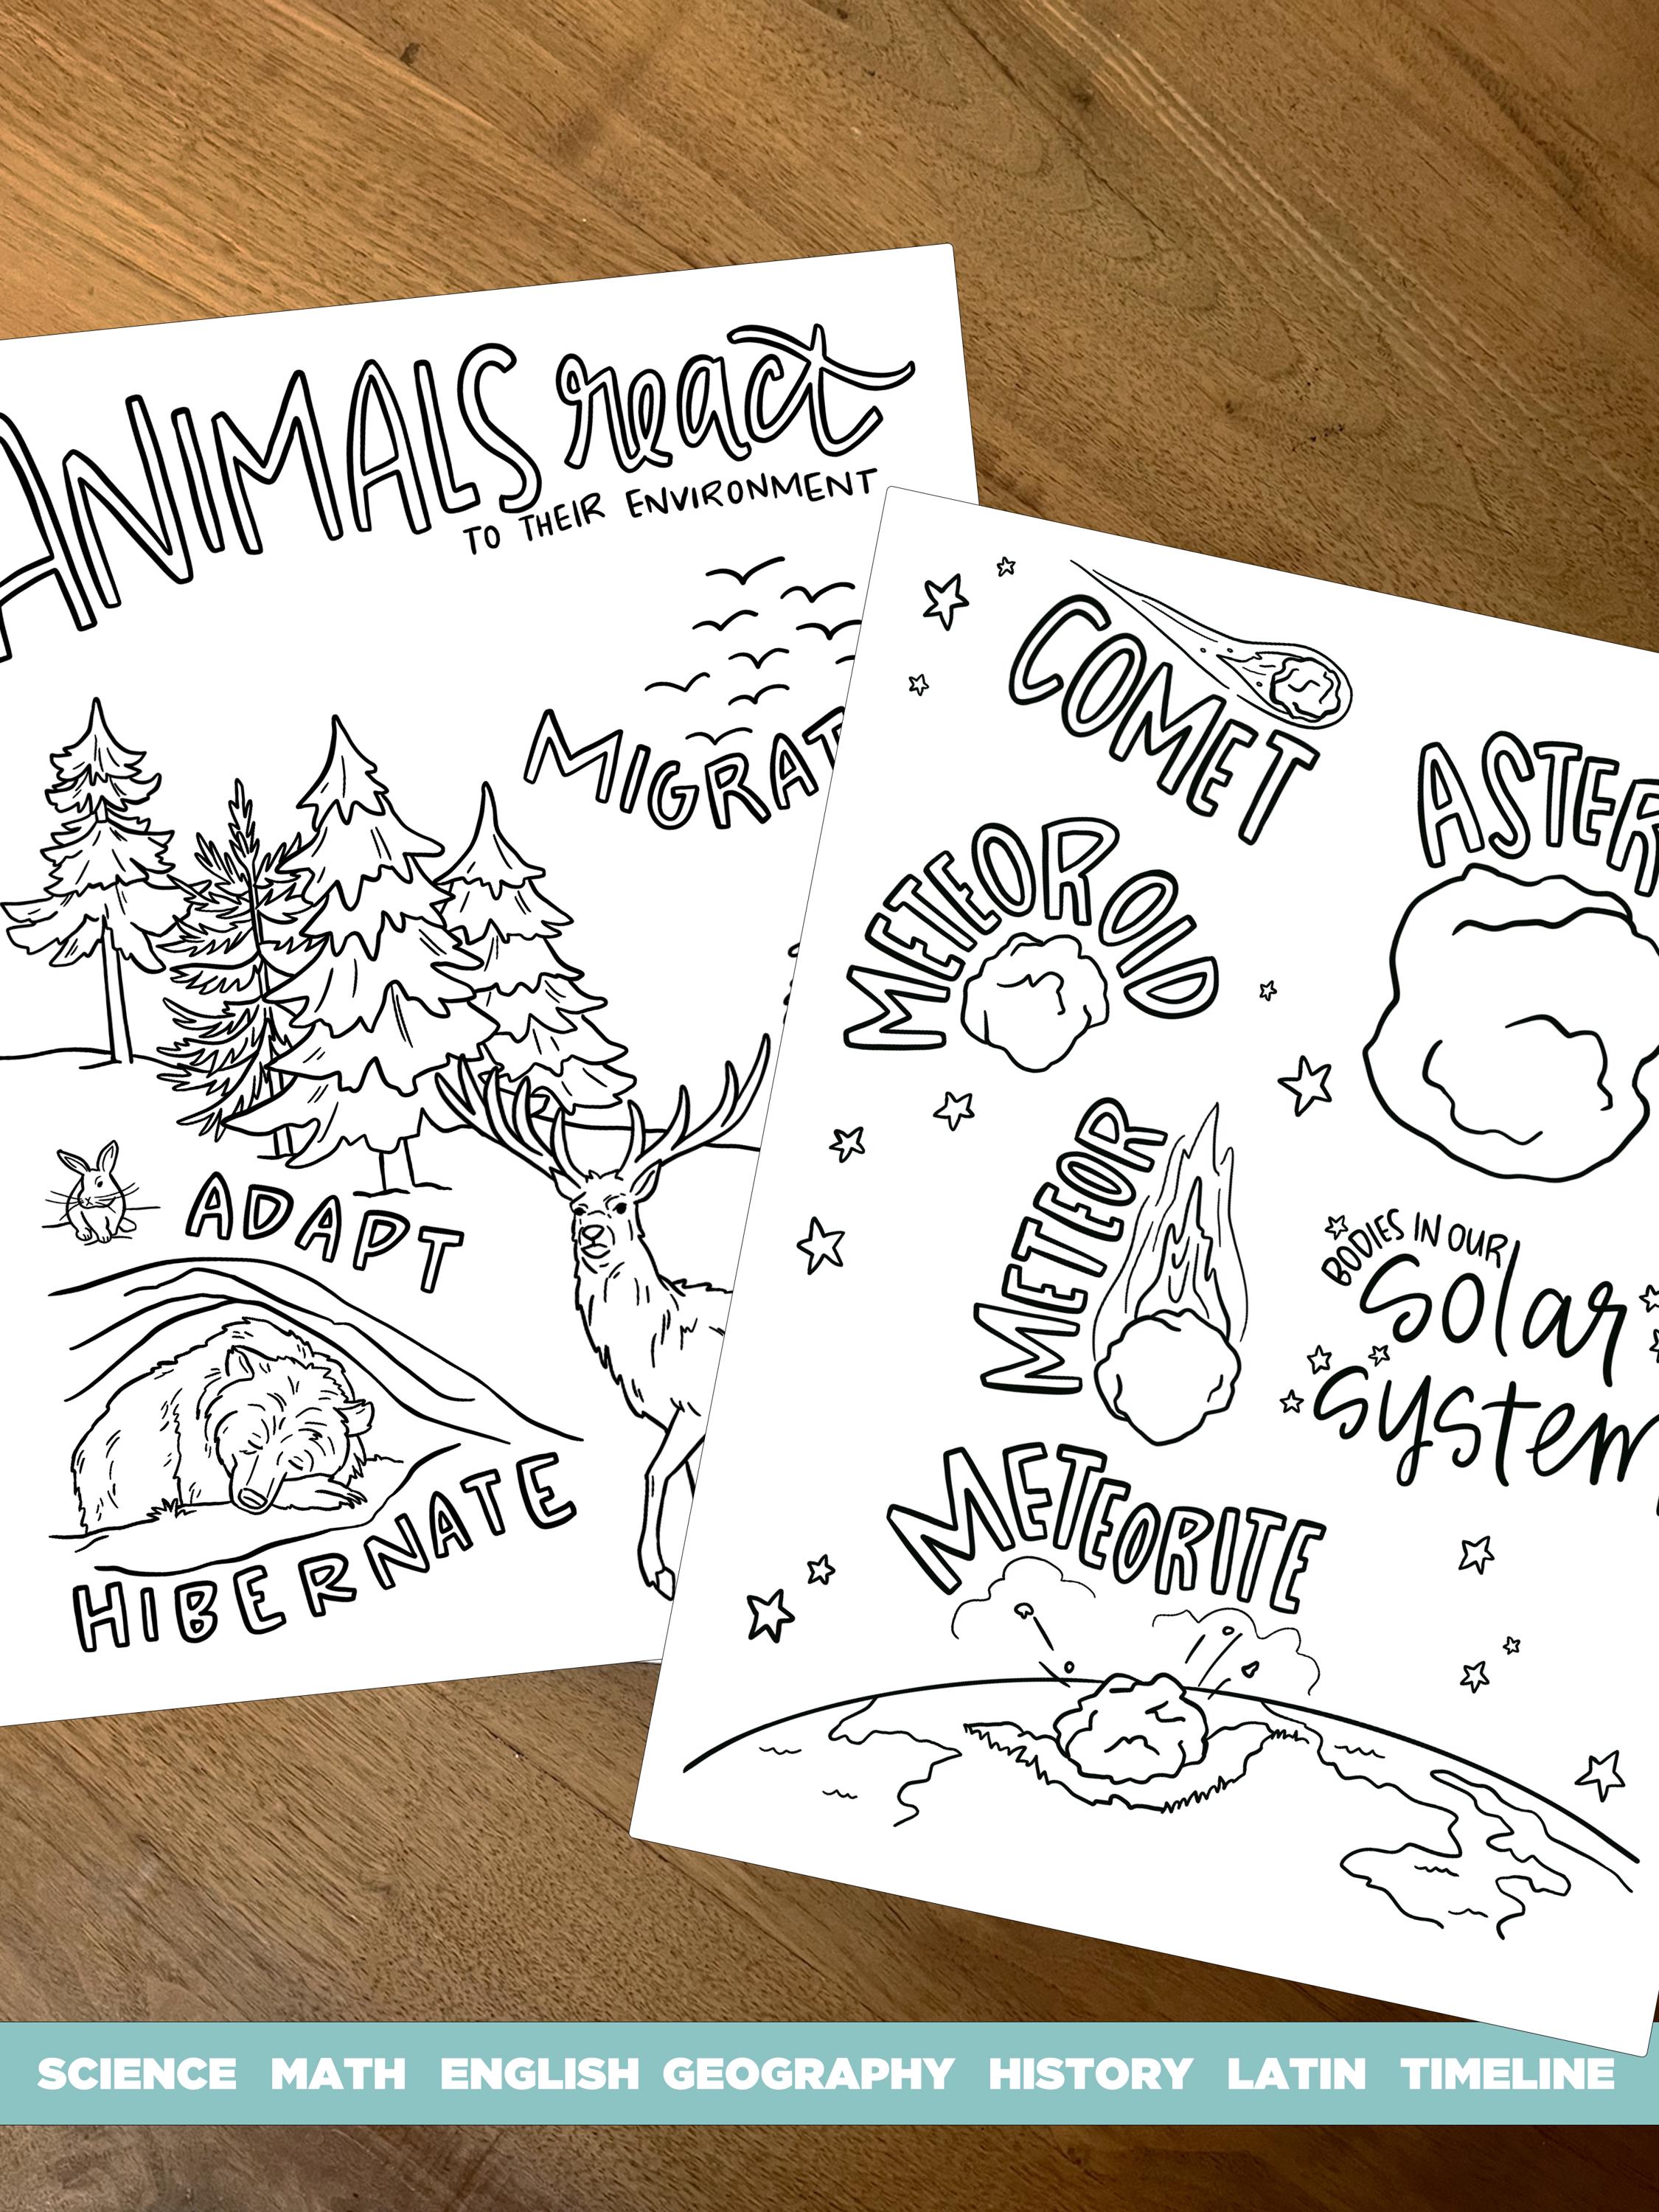 ANIMALS react
TO THEIR ENVIRONMENT
MIGRAT
ADAPT
HIBERNATE
COMET
ASTER
METEOROID
METEOR
BODIES IN OUR
solar
system
METEORITE
SCIENCE MATH ENGLISH GEOGRAPHY HISTORY LATIN TIMELINE